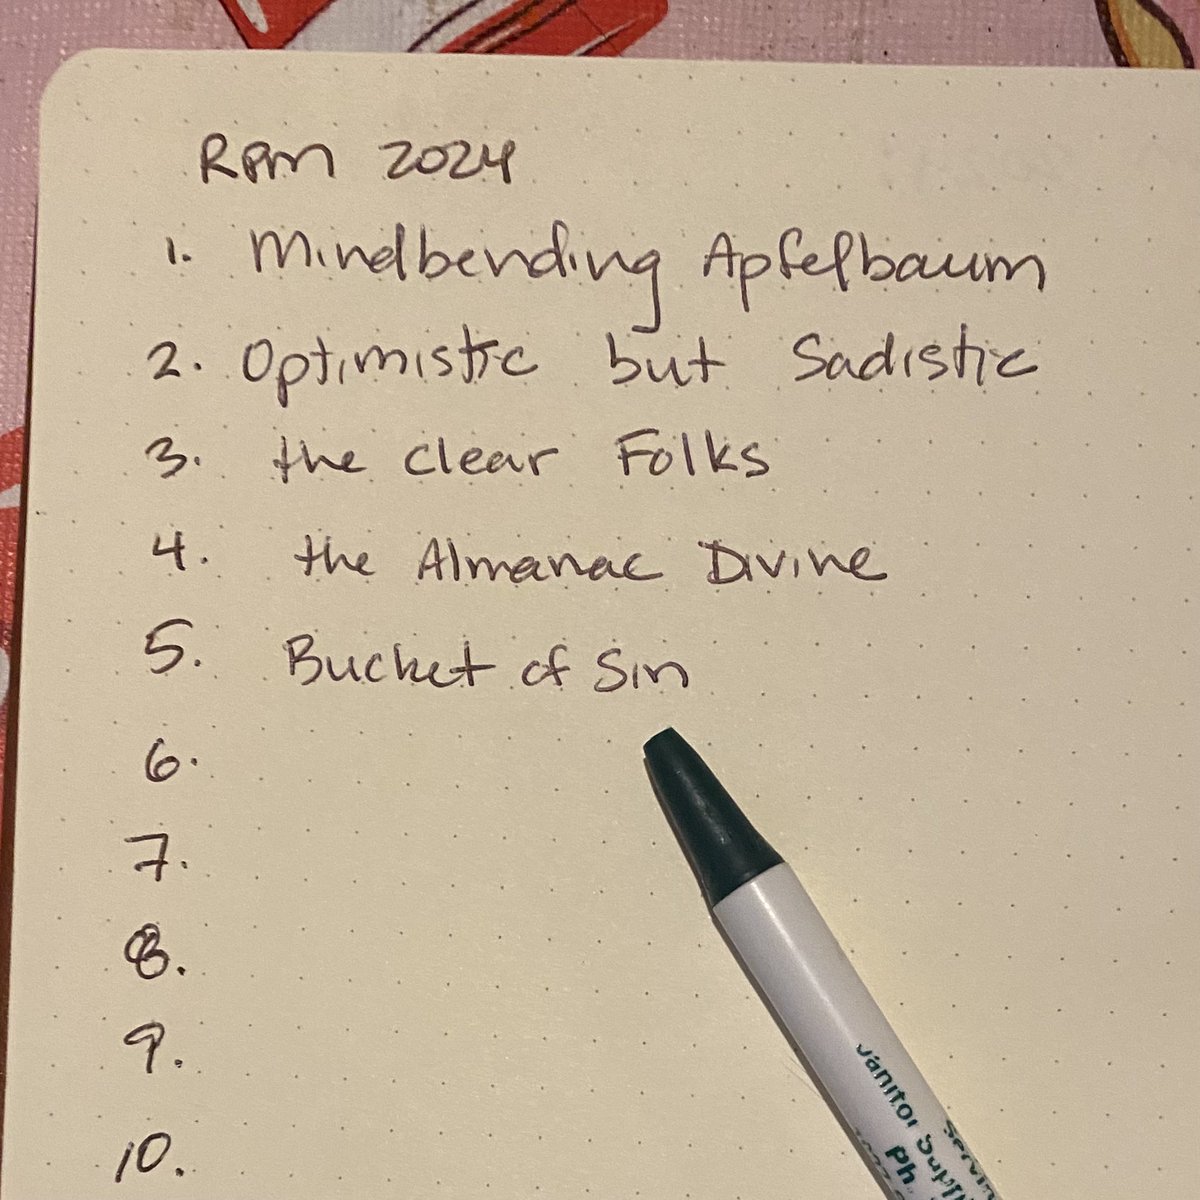 RPM 2024
1. Mindbending Apfelbaum
2. Optimistic but Sadistic
3. the Clear Folks
4. the Almanac Divine
5. Bucket of Sin
6.
7.
8.
9.
10.
Janitor
Ph.